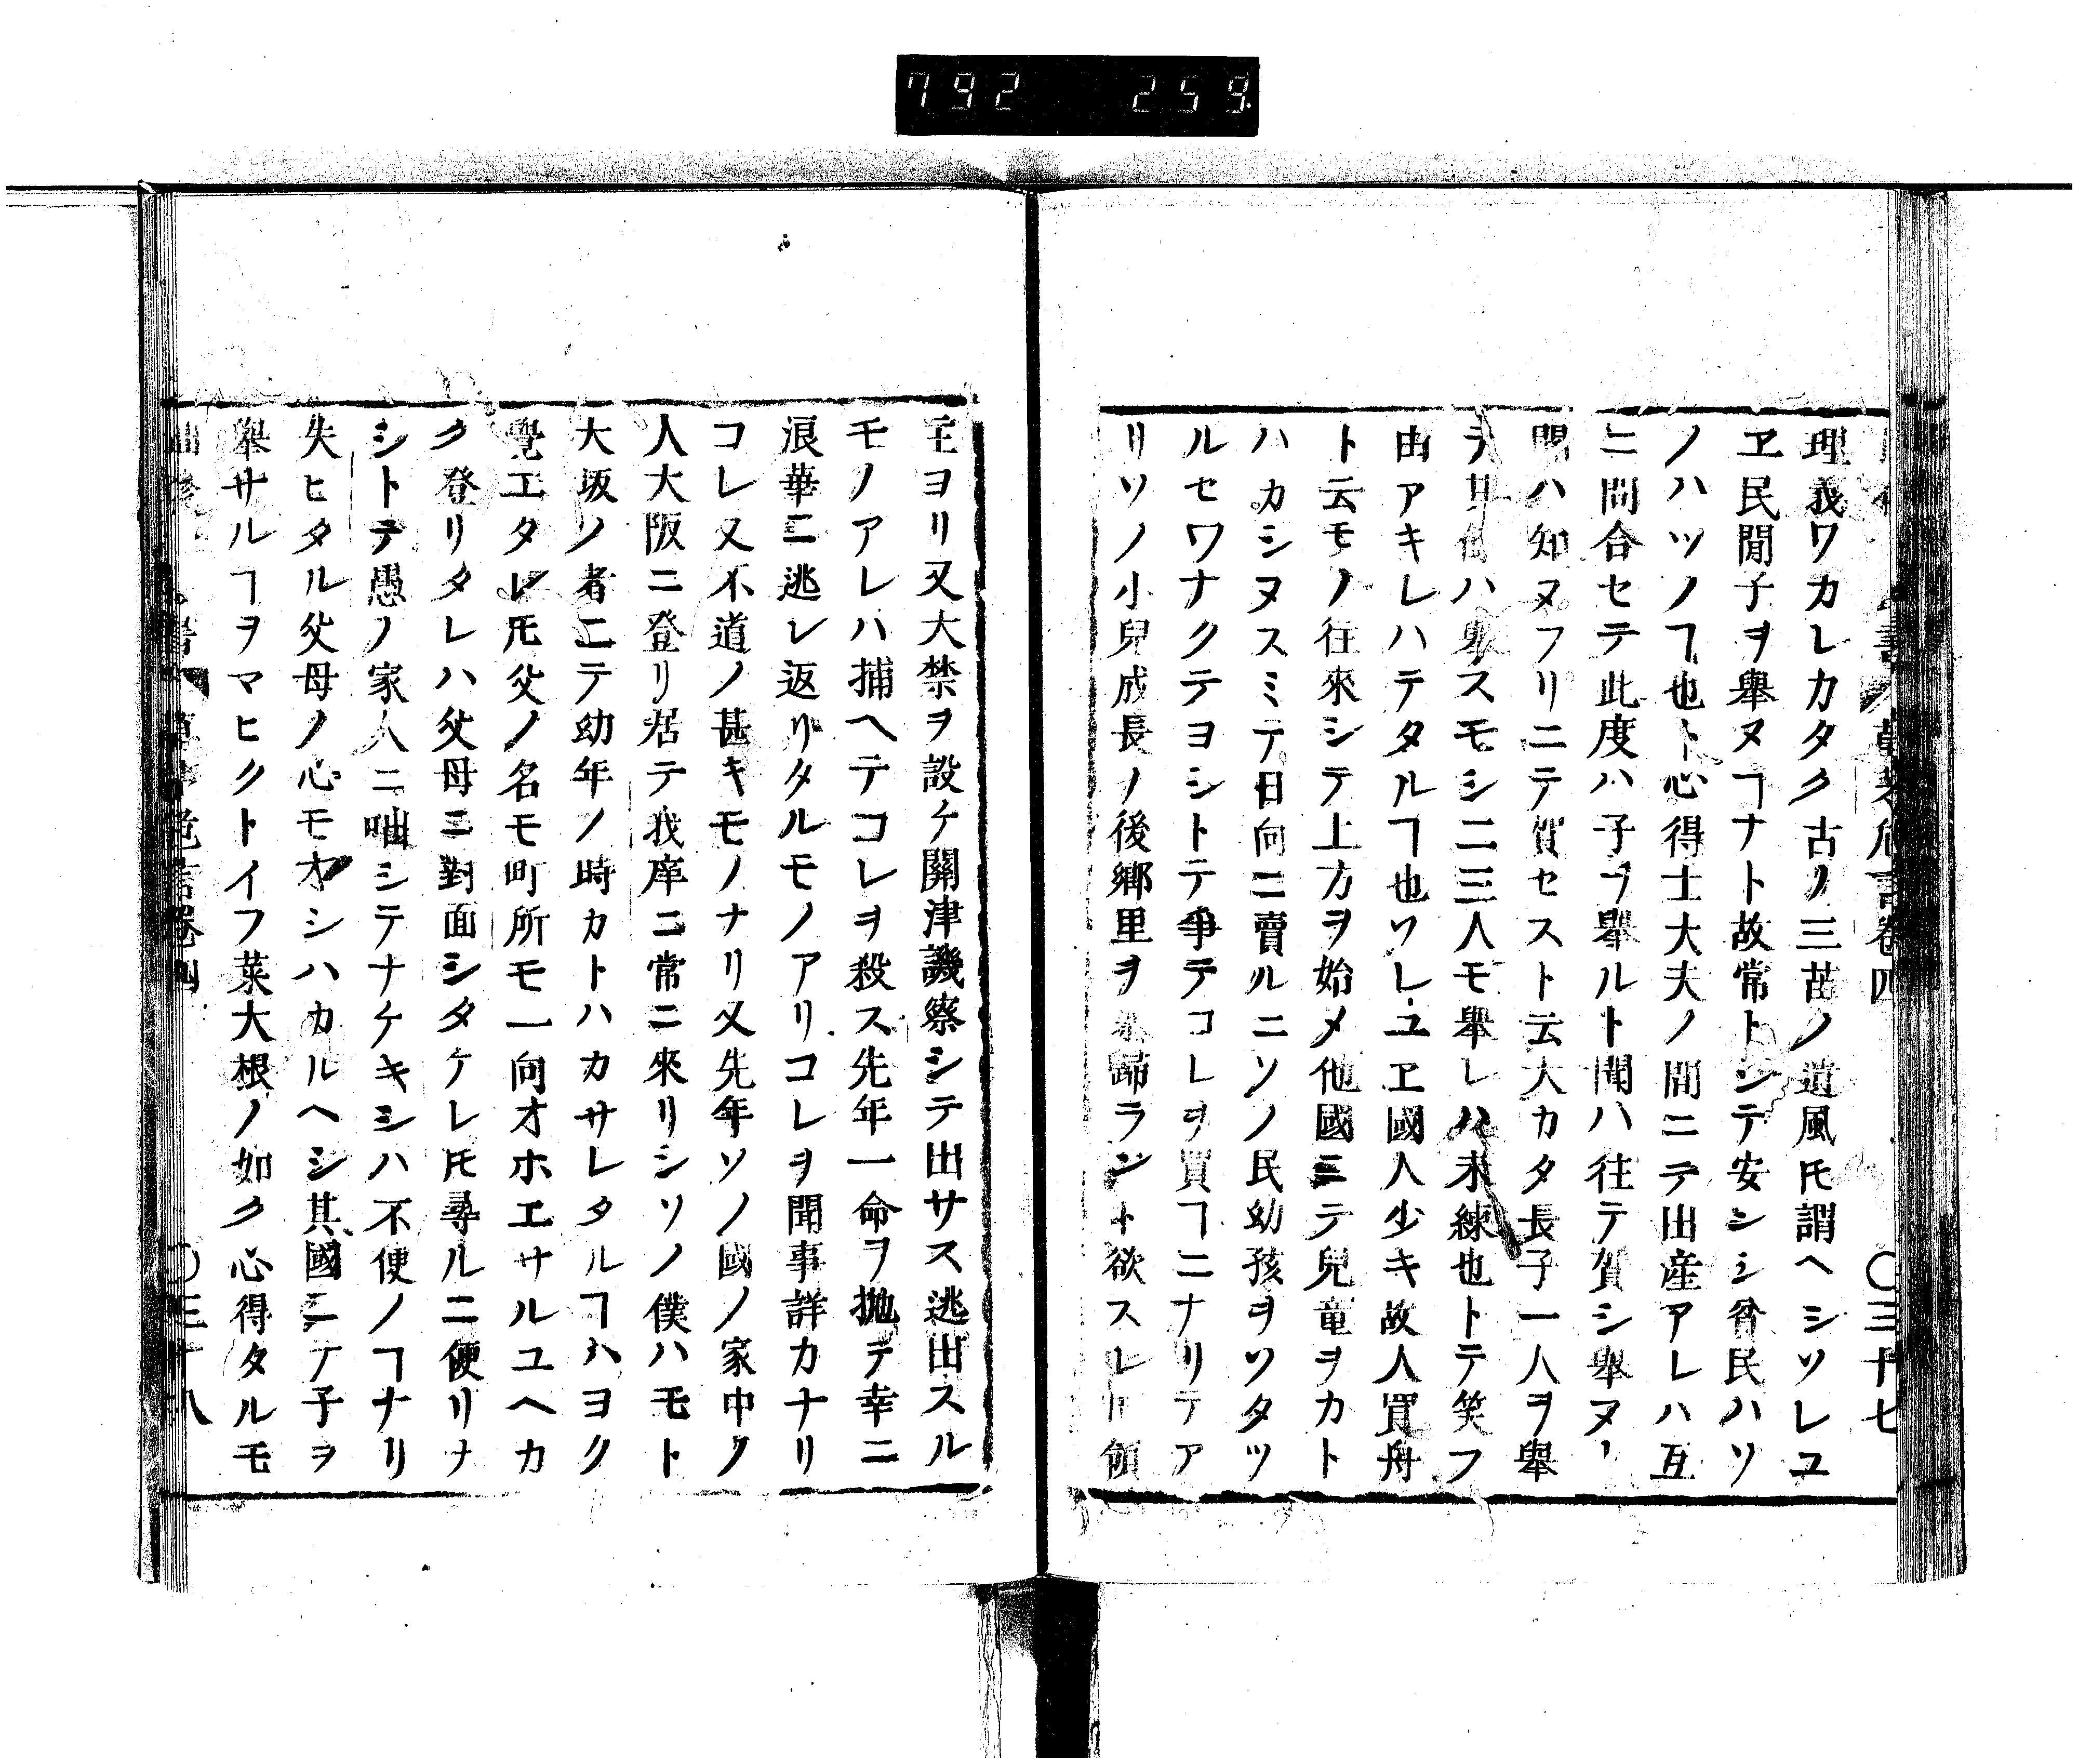 792 259
〇三十七
理義ワカレカタク古ノ三苗ノ遺風𪜈謂ヘシソレユ
ヱ民間子ヲ舉ヌヿナト故常トシテ安シシ貧民ハソ
ノハツノヿ也ト心得士大夫ノ間ニテ出産アレハ互
ニ問合セテ此度ハ子ヲ舉ルト聞ハ往テ賀シ舉ヌト
聞ハ知ヌフリニテ賀セスト云大カタ長子一人ヲ舉
テ其餘ハ舉スモシ二三人モ舉レハ未練也トテ笑フ
由アキレハテタルヿ也ソレユヱ國人少キ故人買舟
ト云モノ往來シテ上方ヲ始メ他國ニテ兒童ヲカト
ハカシヌスミテ日向ニ賣ルニソノ民幼孩ヲソタツ
ルセワナクテヨシトテ爭テコレヲ買ヿニナリテア
リソノ小兒成長ノ後鄉里ヲ歸ラント欲スレ𪜈領
主ヨリ又大禁ヲ設ケ關津譏察シテ出サス逃出スル
モノアレハ捕ヘテコレヲ殺ス先年一命ヲ抛テ幸ニ
浪華ニ逃レ返リタルモノアリコレヲ聞事詳カナリ
コレ又不道ノ甚キモノナリ又先年ソノ國ノ家中ク
人大阪ニ登リ居テ我庠ニ常ニ來リシソノ僕ハモト
大坂ノ者ニテ幼年ノ時カトハカサレタルヿハヨク
覺エタレ𪜈父ノ名モ町所モ一向オホエサルユヘカ
ク登リタレハ父母ニ對面シタケレ𪜈尋ルニ便リナ
シトテ愚ノ家人ニ咄シテナケキシハ不便ノヿナリ
失ヒタル父母ノ心モオシハカルヘシ其國ニテ子ヲ
舉サルヿヲマヒクトイフ菜大根ノ如ク心得タルモ
〇三十八